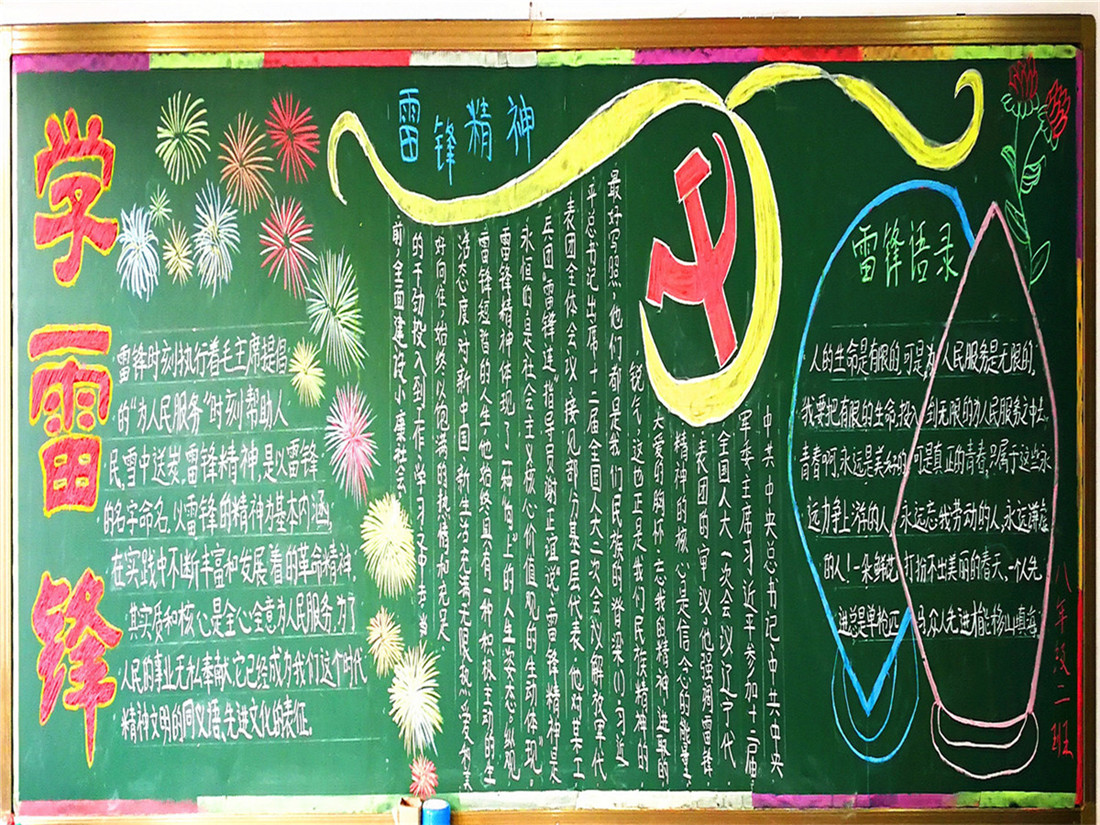 学雷锋
雷锋时刻执行着毛主席提倡
的“为人民服务”时刻帮助人
民,雪中送炭,雷锋精神,是以雷锋
的名字命名,以雷锋的精神为基本内涵,
在实践中不断丰富和发展着的革命精神,
其实质和核心是全心全意为人民服务,为了
人民的事业无私奉献,它已经成为我们这个时代
精神文明的同义语、先进文化的表征。
雷锋精神
中共中央总书记、中共中央
军委主席习近平参加十二届
全国人大一次会议辽宁代
表团的审议,他强调雷锋
精神的核心是信念的能量
大爱的胸怀、忘我的精神进取的
锐气,这也正是我们民族精神的
最好写照,他们都是我们民族的脊梁(1)。习近
平总书记出席十二届全国人大二次会议解放军代
表团全体会议,接见部分基层代表,他对某工
兵团“雷锋连”指导员谢正谊说:“雷锋精神是
永恒的是社会主义核心价值观的生动体现”。
雷锋精神体现了一种“向上”的人生姿态。纵观
雷锋短暂的人生他始终具有一种积极主动的生
活态度,对新中国、新生活充满无限热爱和美
好向往,始终以饱满的热情和充足
的干劲投入到工作、学习之中去。当
前,全面建设小康社会
雷锋语录
人的生命是有限的,可是,为人民服务是无限的,
我要把有限的生命,投入到无限的为人民服务之中去。
青春啊,永远是美好的,可是真正的青春,只属于这些永
远力争上游的人,永远忘我劳动的人,永远谦虚
的人!一朵鲜花打扮不出美丽的春天,一个人先
进总是单枪匹马,众人先进才能移山填海。
八年级二班